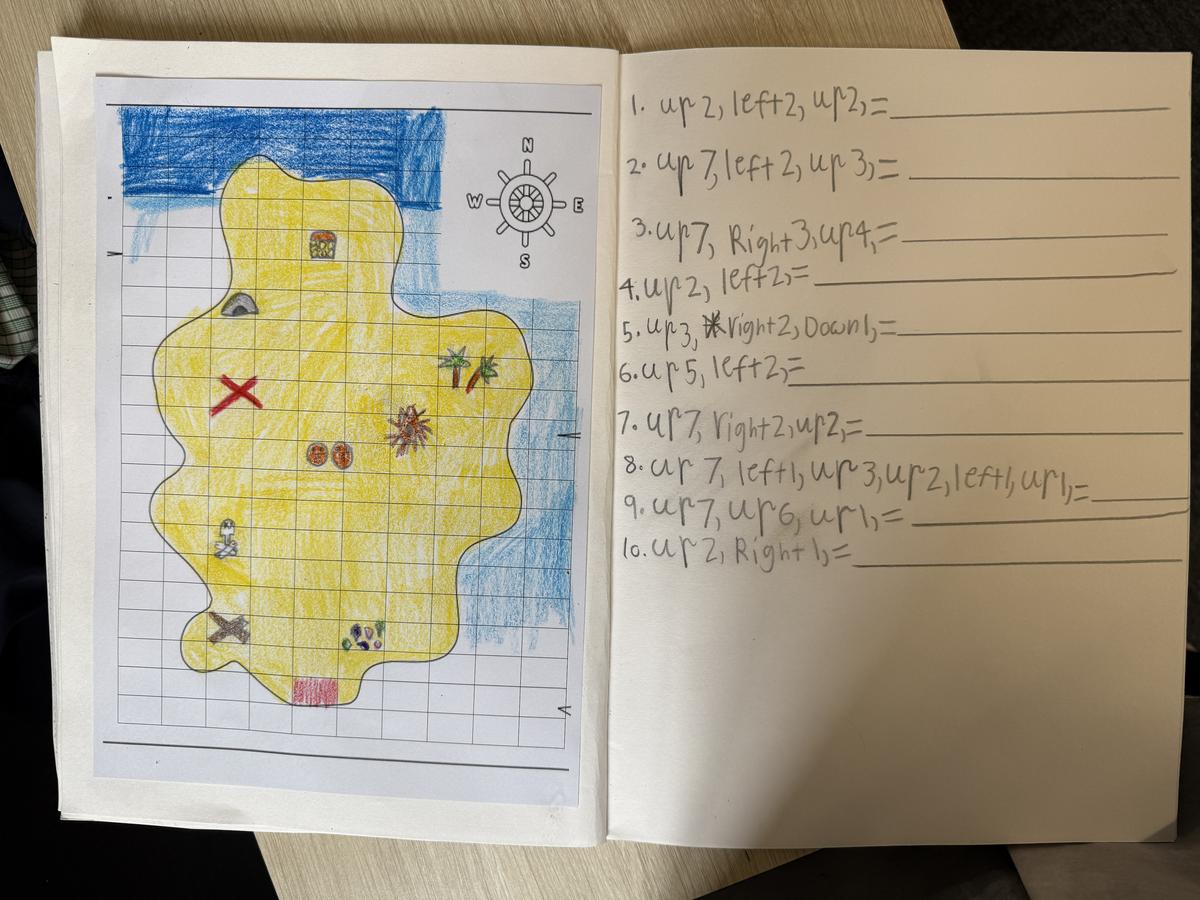 N
W E
S
1. up 2, left 2, up 2, =
2. up 7, left 2, up 3, =
3. up 7, Right 3, up 4, =
4. up 2, left 2, =
5. up 3, right 2, Down 1, =
6. up 5, left 2, =
7. up 7, right 2, up 2, =
8. up 7, left 1, up 3, up 2, left 1, up 1, =
9. up 7, up 6, up 1, =
10. up 2, Right 1, =